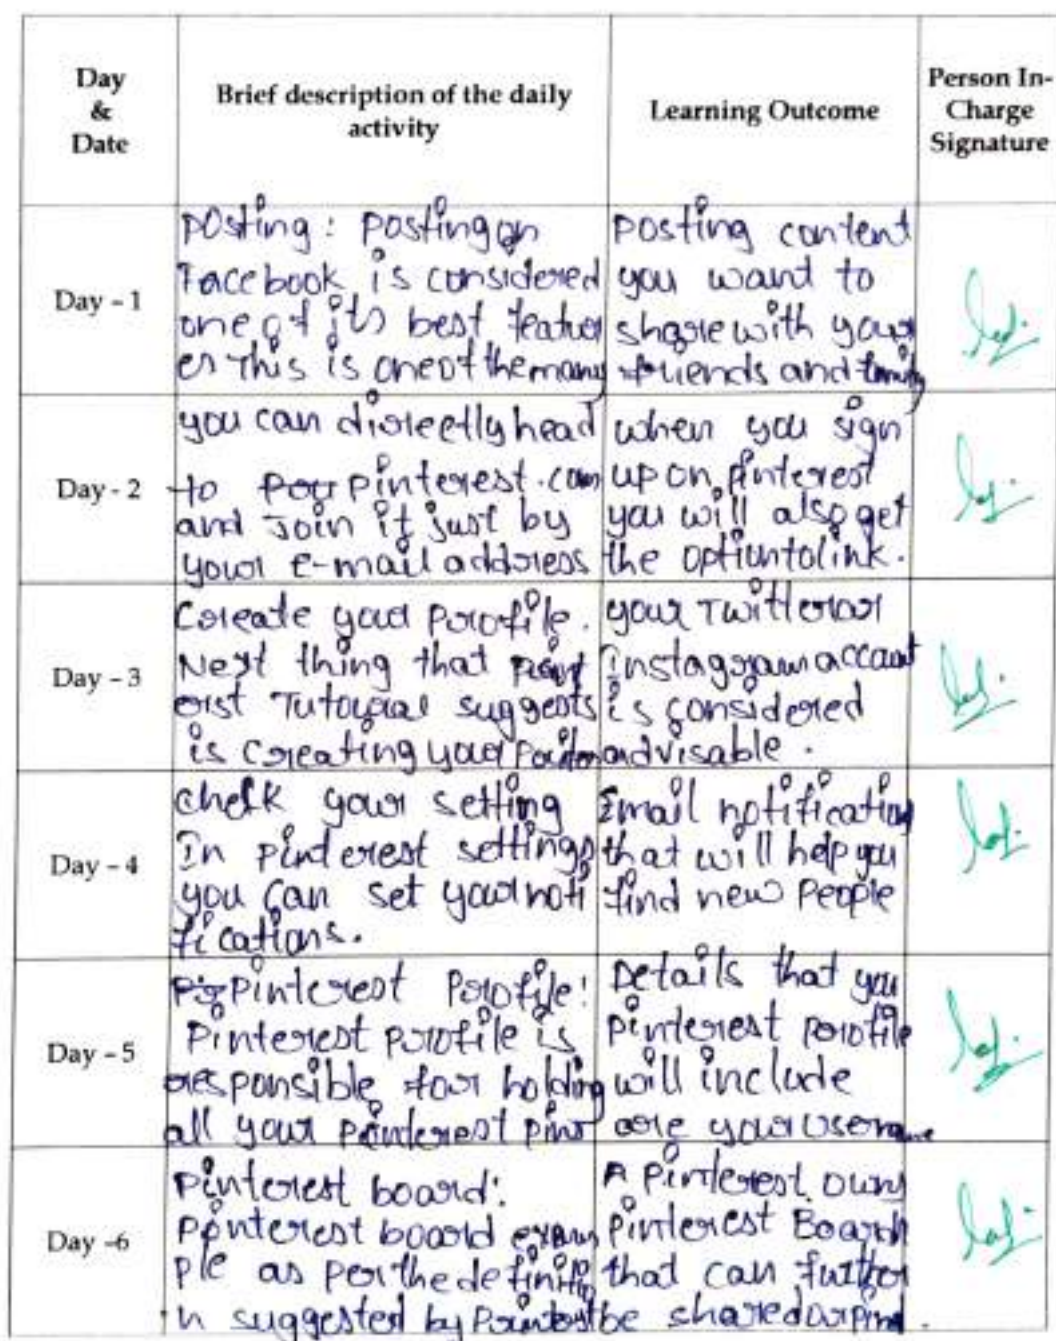 Day
&
Date
Brief description of the daily
activity
Learning Outcome
Person In-
Charge
Signature
Day - 1
Posting: Posting on
Facebook is considered
one of its best featur
es This is one of the many
Posting content
you want to
share with your
friends and family
Day - 2
you can directly head
to Pinterest.com
and Join it just by
your e-mail address
when you sign
up on pinterest
you will also get
the option to link.
Day - 3
Create your Profile.
Next thing that pint
erst Tutorial suggests
is creating your
your Twitter or
Instagram account
is considered
advisable.
Day - 4
check your setting
In pinterest settings
you can set your noti
fications.
Email notification
that will help you
find new People
Day - 5
Pinterest Profile:
Pinterest profile is
responsible for holding
all your pinterest pins
Details that you
pinterest profile
will include
are your Username
Day -6
Pinterest board:
Pinterest board exam
ple as per the definitio
n suggested by
A Pinterest owns
Pinterest Board
that can further
be shared